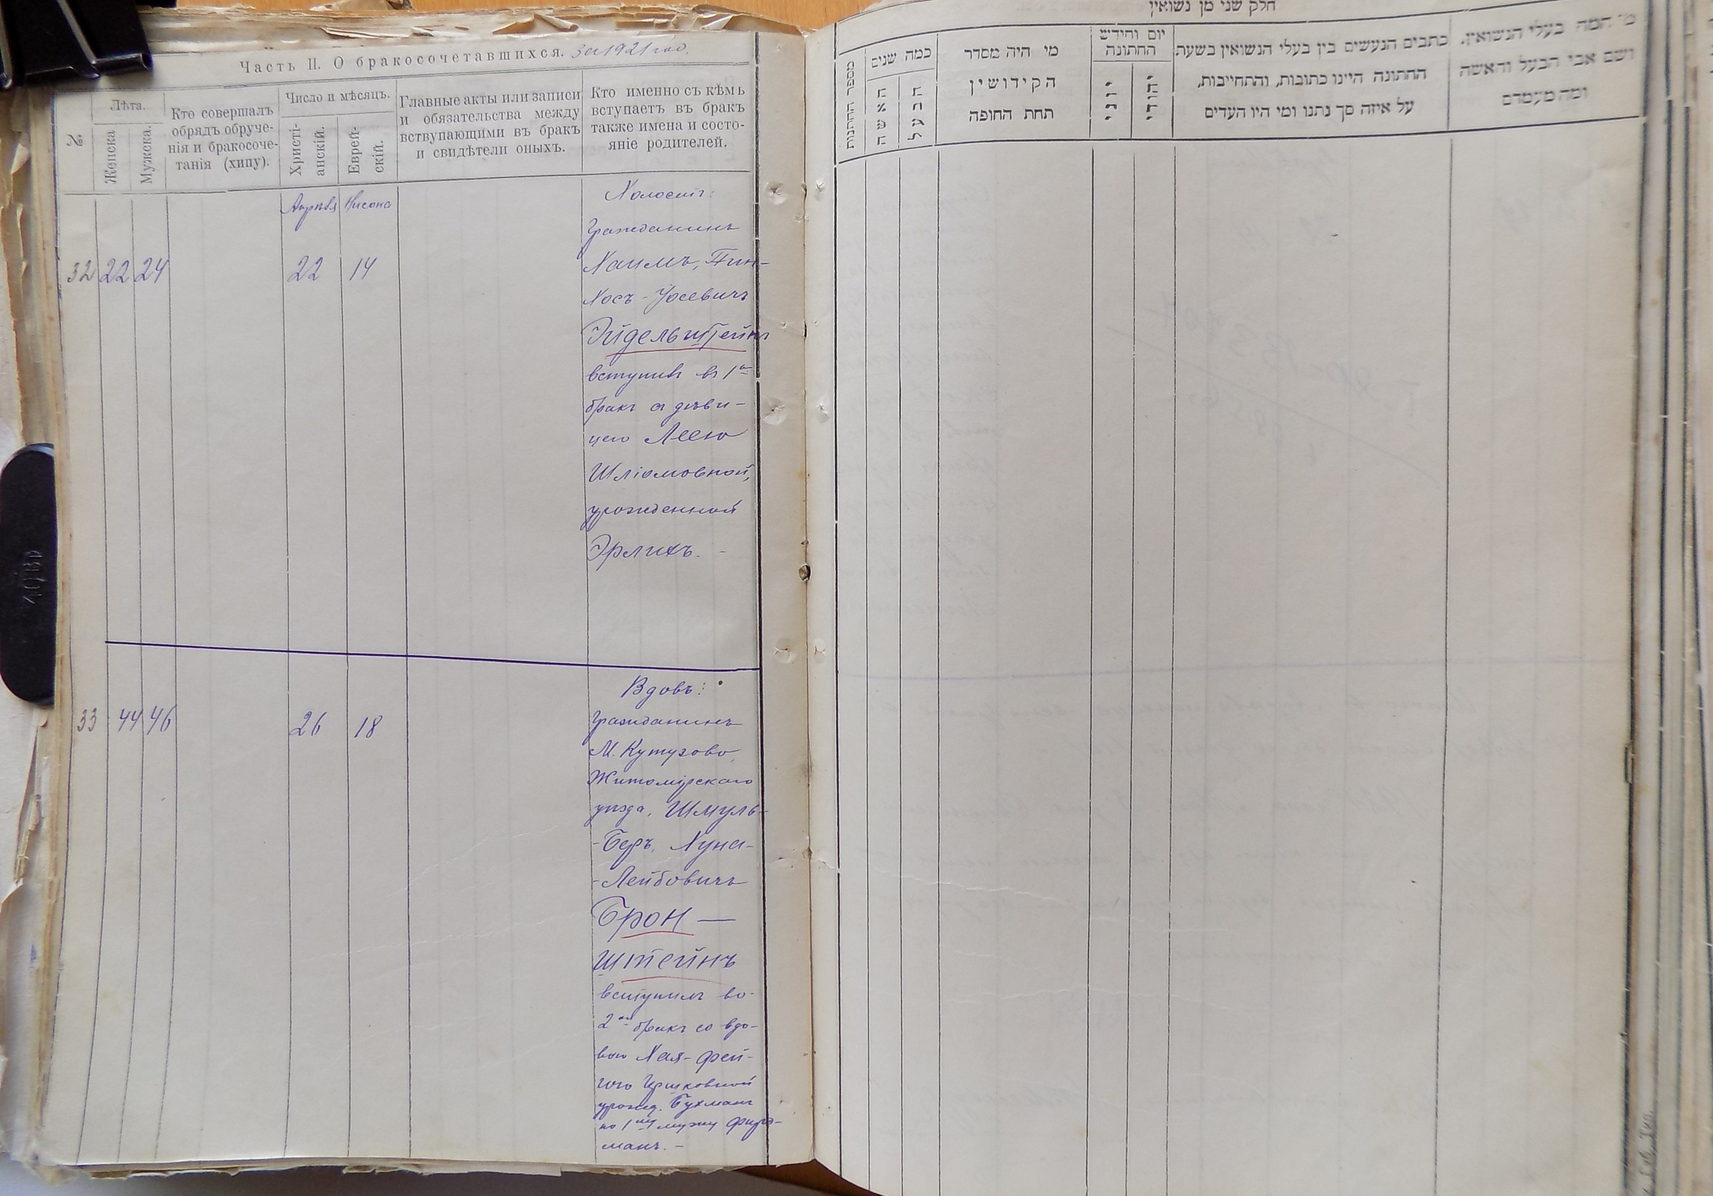 Часть II. О бракосочетавшихся. за 1921 год.
№
Лѣта.
Женска.
Мужска.
Кто совершалъ
обрядъ обруче-
нія и бракосоче-
танія (хипу).
Число и мѣсяцъ.
Христі-
анскій.
Еврей-
скій.
Главные акты или записи
и обязательства между
вствупающими въ бракъ
и свидѣтели оныхъ.
Кто именно съ кѣмъ
вступаетъ въ бракъ
также имена и состо-
яніе родителей.
Апрѣля Нисона
Холостъ:
Гражданинъ
32 22 24 22 14 Хаимъ, Пин-
хосъ-Іосевичъ
Эйдельштейнъ
вступилъ въ 1й
бракъ съ дѣви-
цею Леею
Шліомовной,
урожденной
Эрлихъ. -
Вдовъ:
33 44 46 26 18 Гражданинъ
М. Кутузово
Житомірскаго
уѣзда, Шмуль-
-Беръ, Хуна-
-Лейбовичъ
Брон-
штейнъ
вступилъ во-
2й бракъ со вдо-
вою Хая-Фей-
гою Гершковной
урожд. Бухманъ
по 1му мужу Фурз-
манъ. -
חלק שני מן נשואין
מספר החתונות
כמה שנים
האשה
הבעל
מי היה מסדר
הקידושין
תחת החופה
יום וחידש
החתונה
יוני
יהודי
כתבים הנעשים בין בעלי הנשואין בשעת
החתונה היינו כתובות, והתחייבות,
על איזה סך נתנו ומי היו העדים
מי המה בעלי הנשואין.
ושם אבי הבעל והאשה
ומה מעמדם